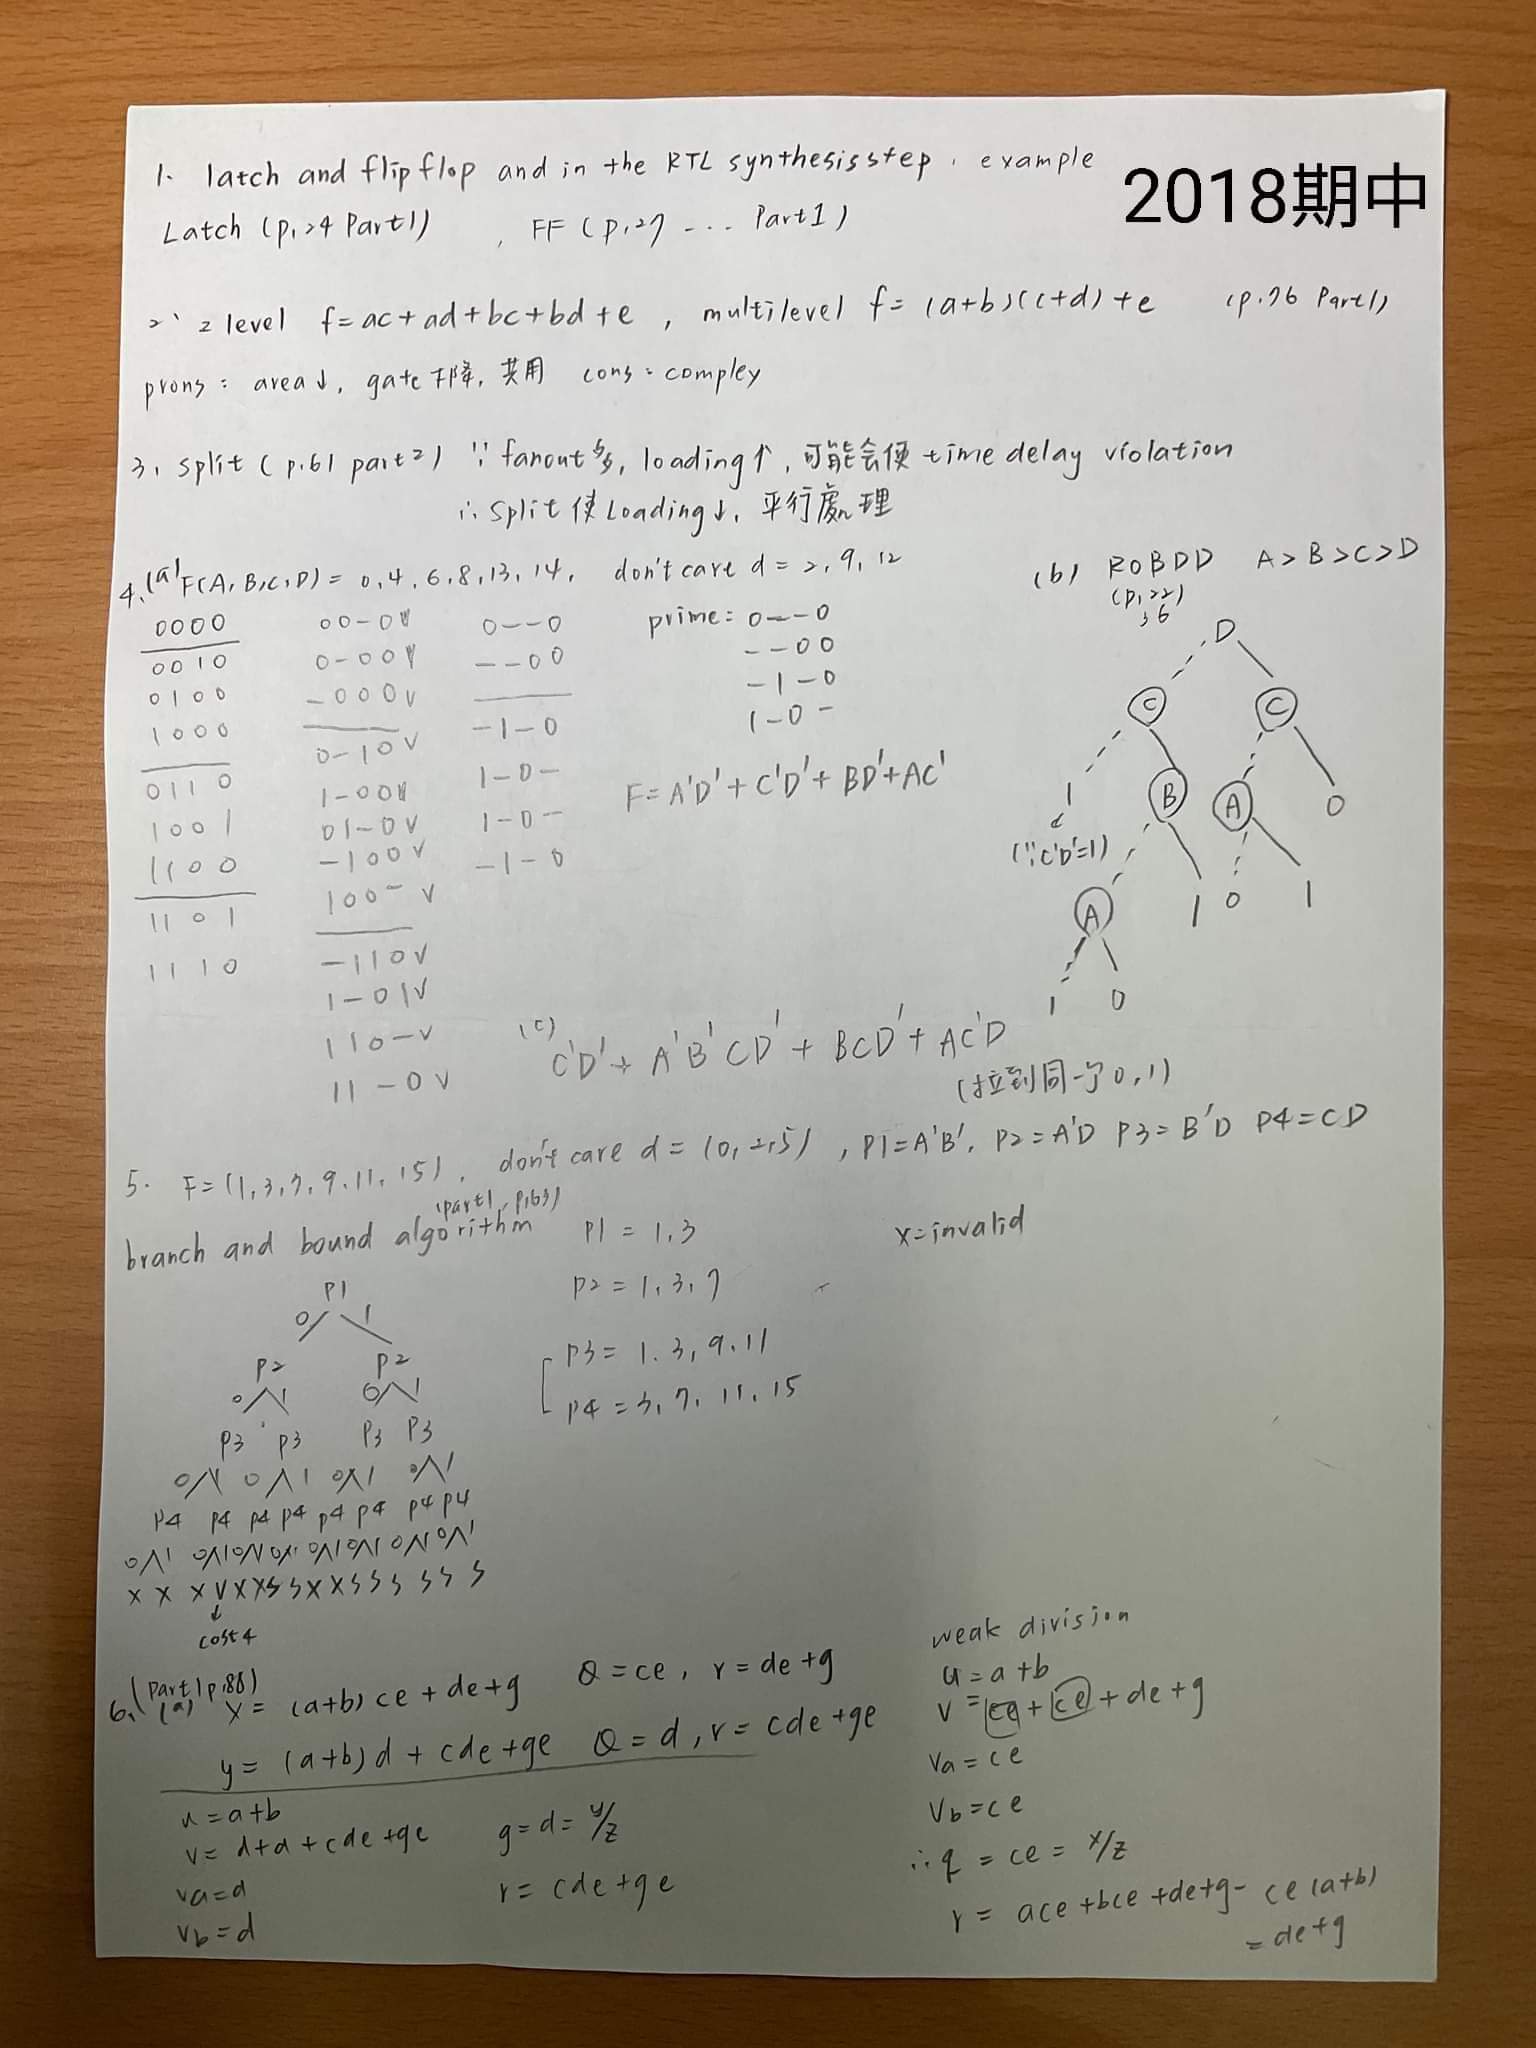 2018期中
1. latch and flipflop and in the RTL synthesis step, example
Latch (p.24 Part1) , FF (p.27 ... Part1)
2、 2 level f=ac+ad+bc+bd+e , multilevel f=(a+b)(c+d)+e (p.76 Part1)
prons: area↓, gate下降, 共用 cons: compley
3, split (p.61 part2) ∵ fanout多, loading↑, 可能会使 time delay violation
∴ split 使 Loading↓, 平行處理
4.(a) F(A,B,C,D) = 0,4,6,8,13,14, don't care d = 2,9,12
0000
0010
0100
1000
0110
1001
1100
1101
1110
00-0v
0-00v
-000v
0-10v
1-00v
01-0v
-100v
100-v
-110v
1-01v
110-v
11-0v
0--0
--00
-1-0
1-0-
1-0-
-1-0
prime: 0--0
--00
-1-0
1-0-
F=A'D'+C'D'+BD'+AC'
(b) ROBDD A>B>C>D
(p.22)
36
D
C C
1 B A 0
(∵C'D'=1)
A 1 0 1
1 0
(c) C'D'+A'B'CD'+BCD'+AC'D
(拉到同一个0,1)
5. F=(1,3,7,9,11,15), don't care d=(0,2,5), P1=A'B', P2=A'D P3=B'D P4=CD
(part1, p.63)
branch and bound algorithm
P1 = 1,3
P2 = 1,3,7
P3 = 1,3,9,11
P4 = 3,7,11,15
x=invalid
P1
0 1
P2 P2
0 1 0 1
P3 P3 P3 P3
0 1 0 1 0 1 0 1
P4 P4 P4 P4 P4 P4 P4 P4
0 1 0 1 0 1 0 1 0 1 0 1 0 1 0 1
cost 4
6. (Part1 p.88)
(a) X = (a+b)ce+de+g Q=ce, r=de+g
y = (a+b)d+cde+ge Q=d, r=cde+ge
u=a+b
v=d+d+cde+ge
va=d
vb=d
g=d=y/z
r=cde+ge
weak division
u=a+b
v=ce+ce+de+g
va=ce
vb=ce
∴ q = ce = x/z
r = ace+bce+de+g-ce(a+b)
= de+g